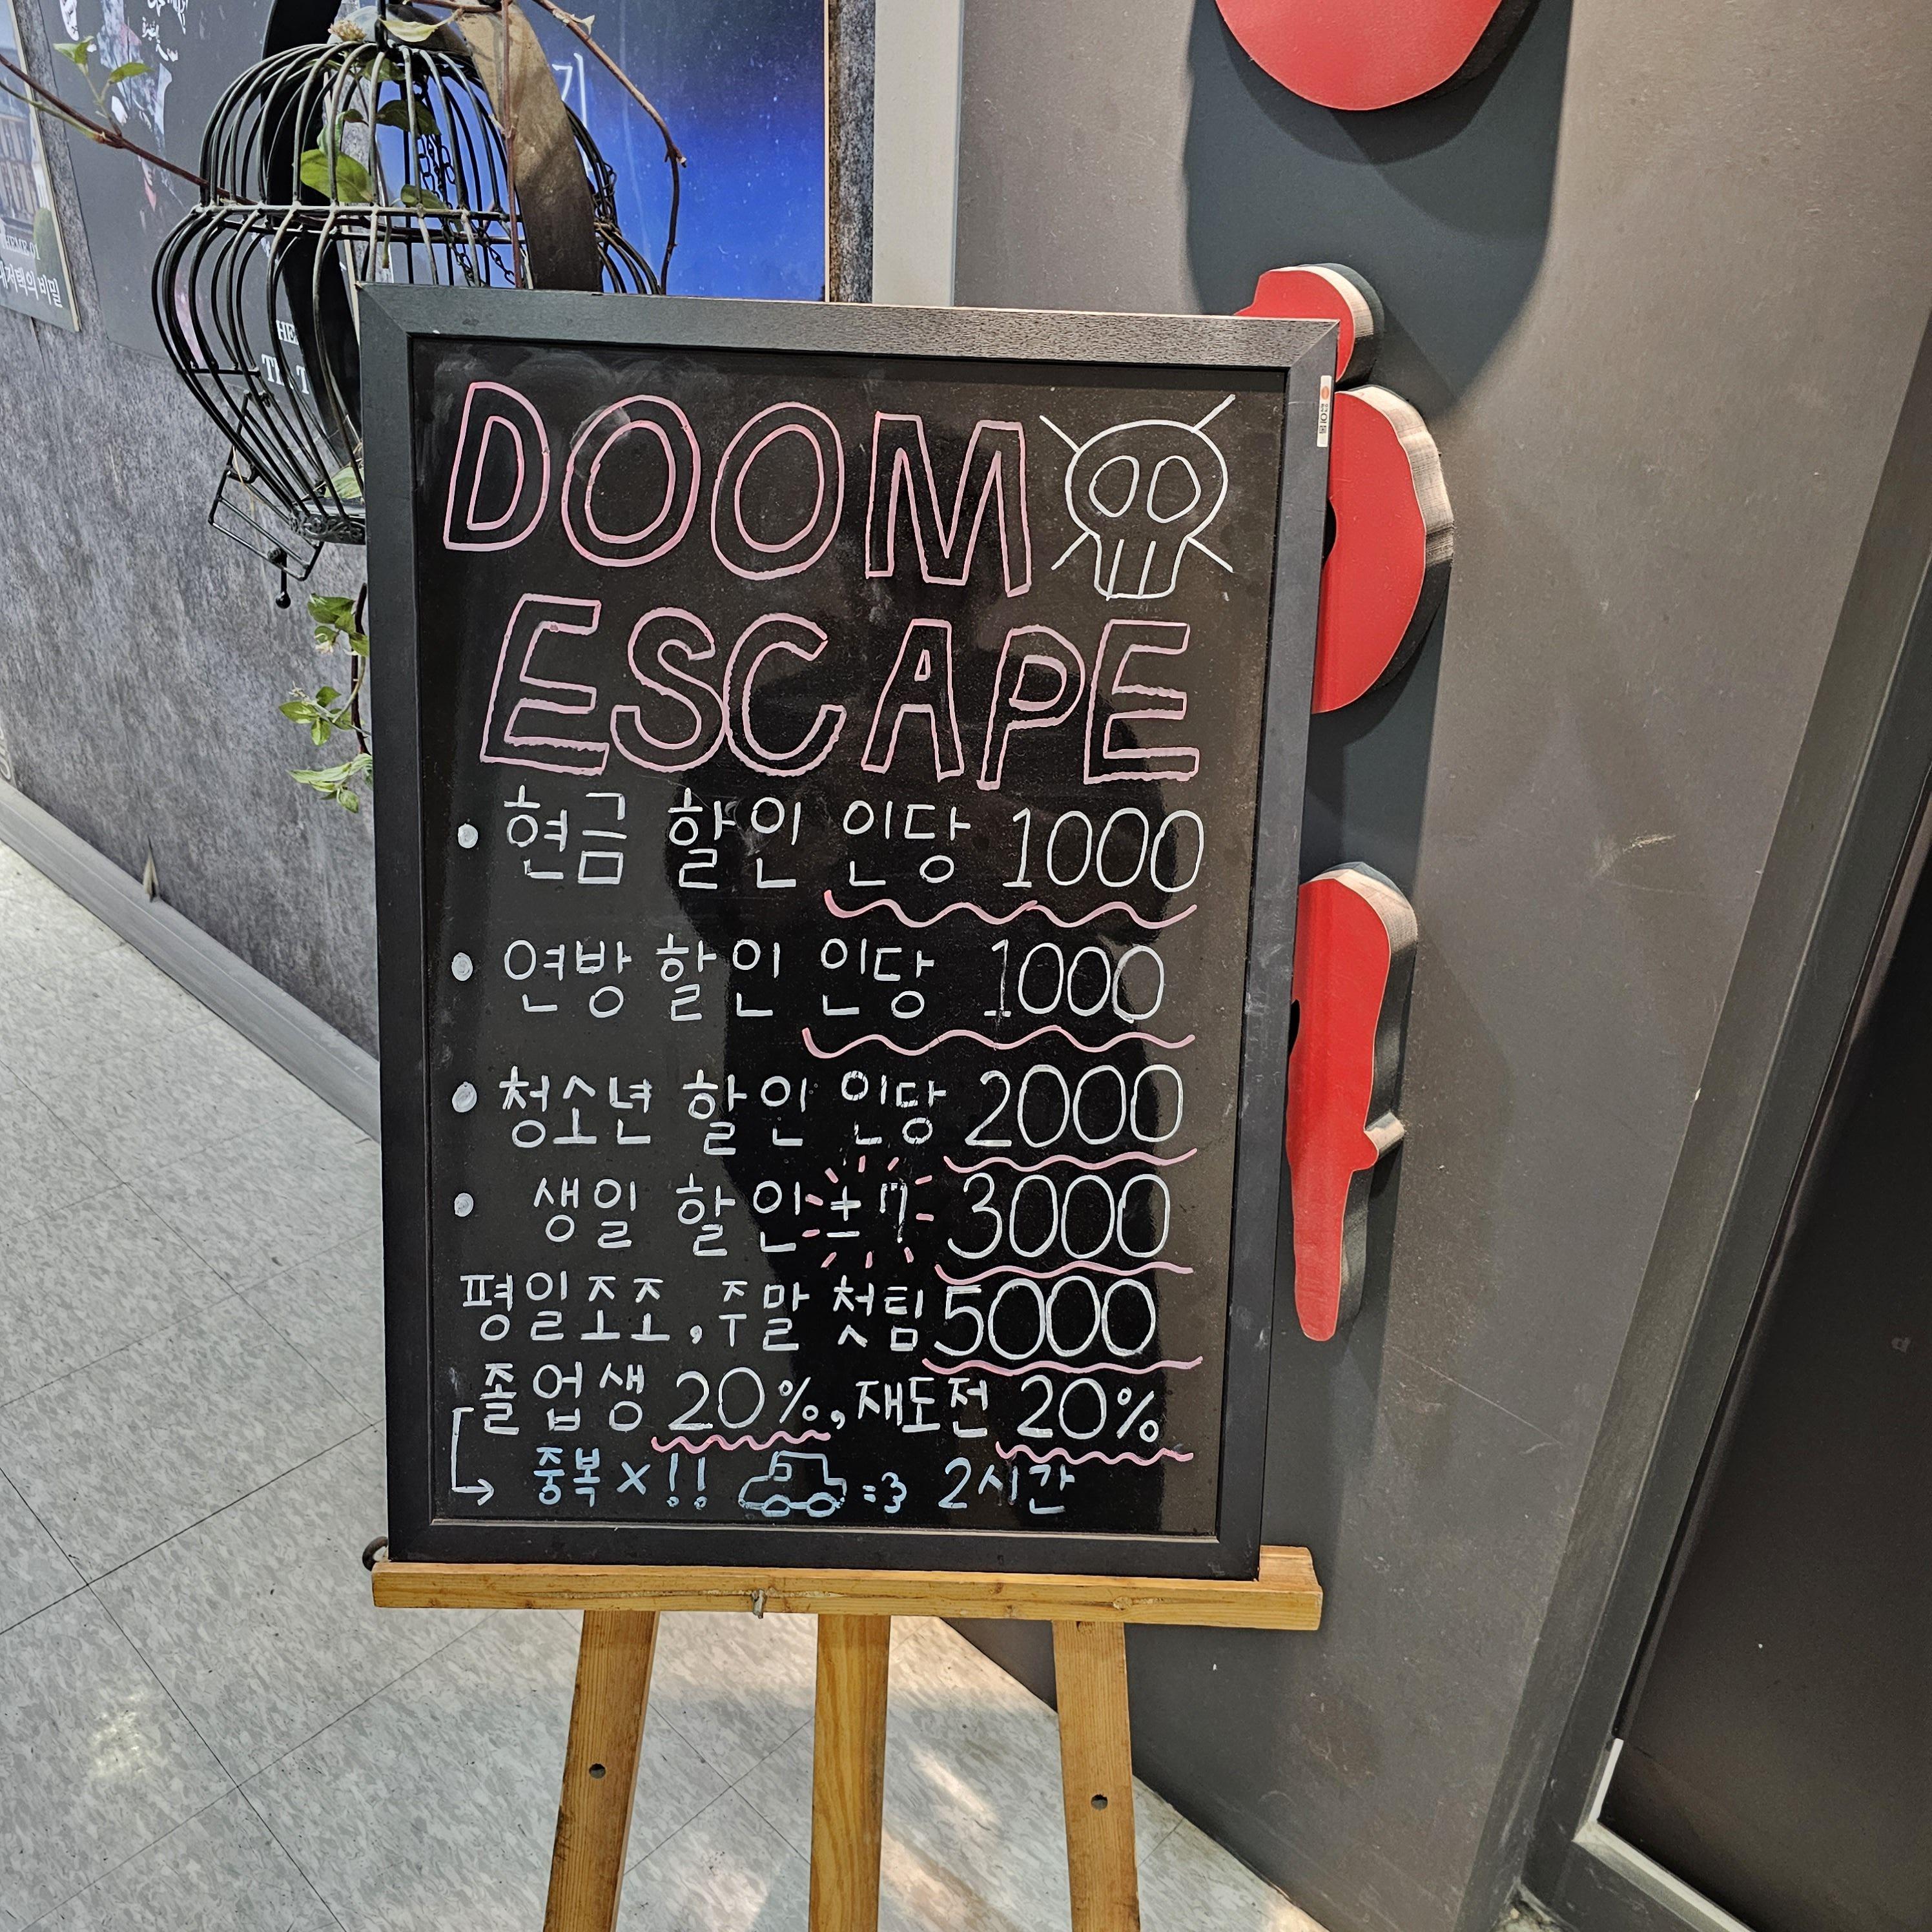 기
THEME 01
의 비밀
DOOM
ESCAPE
• 현금 할인 인당 1000
• 연방 할인 인당 1000
• 청소년 할인 인당 2000
• 생일 할인 ±7 3000
평일조조, 주말 첫팀 5000
졸업생 20%, 재도전 20%
중복 X!! =3 2시간